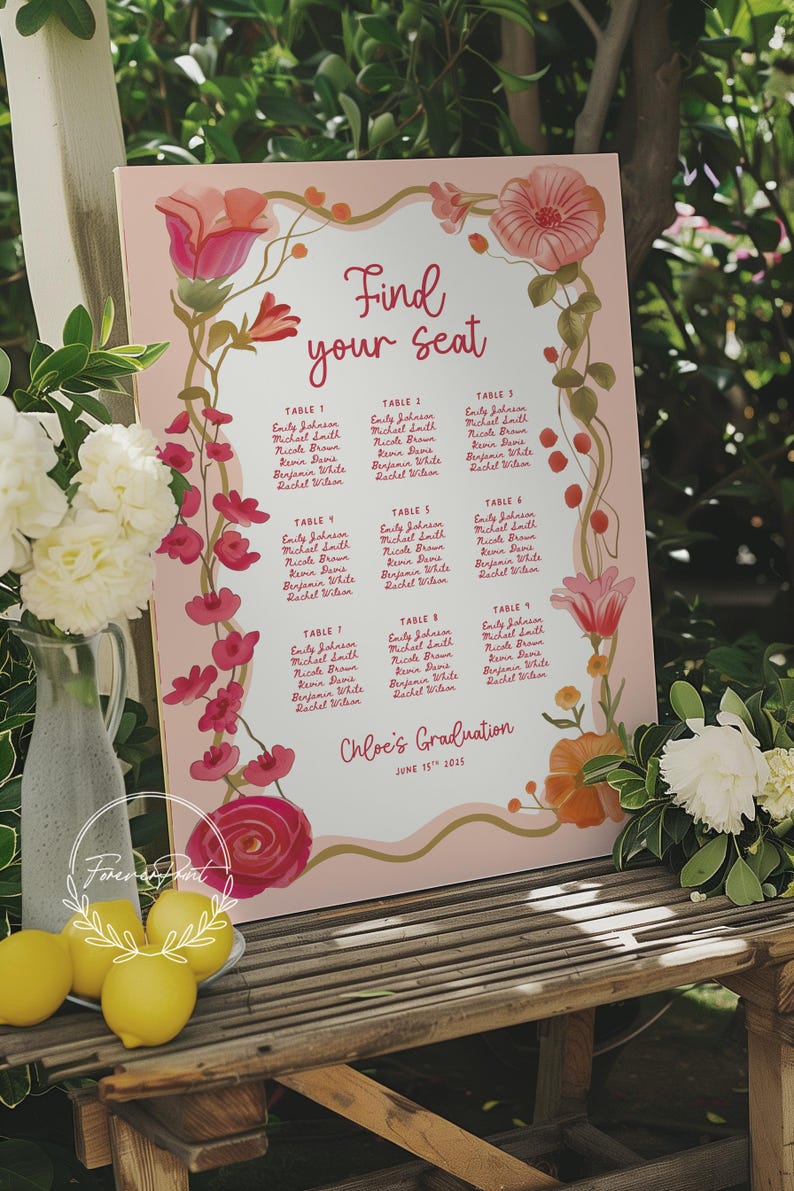 Find
your seat
TABLE 1
Emily Johnson
Michael Smith
Nicole Brown
Kevin Davis
Benjamin White
Rachel Wilson
TABLE 2
Emily Johnson
Michael Smith
Nicole Brown
Kevin Davis
Benjamin White
Rachel Wilson
TABLE 3
Emily Johnson
Michael Smith
Nicole Brown
Kevin Davis
Benjamin White
Rachel Wilson
TABLE 4
Emily Johnson
Michael Smith
Nicole Brown
Kevin Davis
Benjamin White
Rachel Wilson
TABLE 5
Emily Johnson
Michael Smith
Nicole Brown
Kevin Davis
Benjamin White
Rachel Wilson
TABLE 6
Emily Johnson
Michael Smith
Nicole Brown
Kevin Davis
Benjamin White
Rachel Wilson
TABLE 7
Emily Johnson
Michael Smith
Nicole Brown
Kevin Davis
Benjamin White
Rachel Wilson
TABLE 8
Emily Johnson
Michael Smith
Nicole Brown
Kevin Davis
Benjamin White
Rachel Wilson
TABLE 9
Emily Johnson
Michael Smith
Nicole Brown
Kevin Davis
Benjamin White
Rachel Wilson
Chloe's Graduation
JUNE 15TH 2025
ForeverPrint